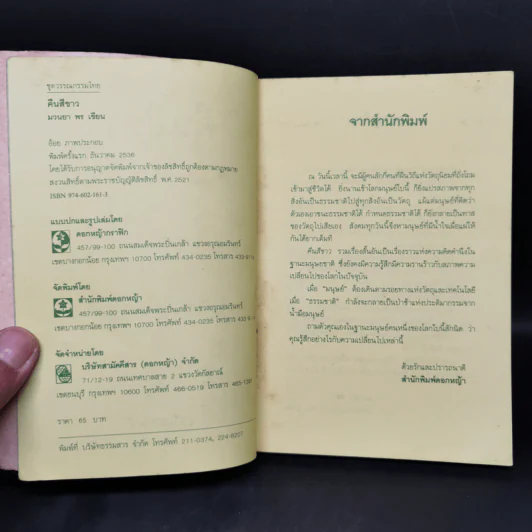 ชุดวรรณกรรมไทย
คืนสีขาว
มวนยา พร เขียน
อ้อย ภาพประกอบ
พิมพ์ครั้งแรก ธันวาคม 2536
โดยได้รับการอนุญาตจัดพิมพ์จากเจ้าของลิขสิทธิ์ถูกต้องตามกฎหมาย
สงวนลิขสิทธิ์ตามพระราชบัญญัติลิขสิทธิ์ พศ 2521
ISBN 974-602-161-3
แบบปกและรูปเล่มโดย
ดอกหญ้ากราฟิก
457/99-100 ถนนสมเด็จพระปิ่นเกล้า แขวงอรุณอมรินทร์
เขตบางกอกน้อย กรุงเทพฯ 10700 โทรศัพท์ 434-0235 โทรสาร
จัดพิมพ์โดย
สำนักพิมพ์ดอกหญ้า
457/99-100 ถนนสมเด็จพระปิ่นเกล้า แขวงอรุณอมรินทร์
เขตบางกอกน้อย กรุงเทพฯ 10700 โทรศัพท์ 434-0235 โทรสาร
จัดจำหน่ายโดย
บริษัทสามัคคีสาร (ดอกหญ้า) จำกัด
71/12-19 ถนนเทศบาลสาย 2 แขวงวัดกัลยาณ์
เขตธนบุรี กรุงเทพฯ 10600 โทรศัพท์ 466-0519 โทรสาร
ราคา 65 บาท
พิมพ์ที่ บริษัทธรรมสาร จำกัด โทรศัพท์ 211-0374,
จากสำนักพิมพ์
ณ วันนี้เวลานี้ จะมีผู้คนสักกี่คนที่ฝืนวิถีแห่งวัตถุนิยมที่ยังโถม
เข้ามาสู่ชีวิตได้ ยิ่งนานเข้าโลกมนุษย์ใบนี้ ก็ยิ่งแปรสภาพจากทุก
สิ่งอันเป็นธรรมชาติไปสู่ทุกสิ่งอันเป็นวัตถุ แม้แต่มนุษย์ที่คิดว่า
ตัวเองเอาชนะธรรมชาติได้ กำหนดธรรมชาติได้ ก็ยังกลายเป็นทาส
ของวัตถุไปเสียเอง สังคมทุกวันนี้จึงหามนุษย์ที่มีน้ำใจเผื่อแผ่ให้
กันได้ยากเต็มที
คืนสีขาว รวมเรื่องสั้นอันเป็นเรื่องราวแห่งความคิดคำนึงใน
ฐานะมนุษยชาติ ซึ่งยังคงมีความรู้สึกมีความรานร้าวกับสภาพความ
เปลี่ยนไปของโลกในปัจจุบัน
เมื่อ "มนุษย์" ต้องเดินตามรอยทางแห่งวัตถุและเทคโนโลยี
เมื่อ "ธรรมชาติ" กำลังจะกลายเป็นป่าช้าแห่งประติมากรรมจาก
น้ำมือมนุษย์
ถามตัวคุณเองในฐานะมนุษย์คนหนึ่งของโลกใบนี้สักนิด ว่า
คุณรู้สึกอย่างไรกับความเปลี่ยนไปเหล่านี้
ด้วยรักและปรารถนาดี
สำนักพิมพ์ดอกหญ้า